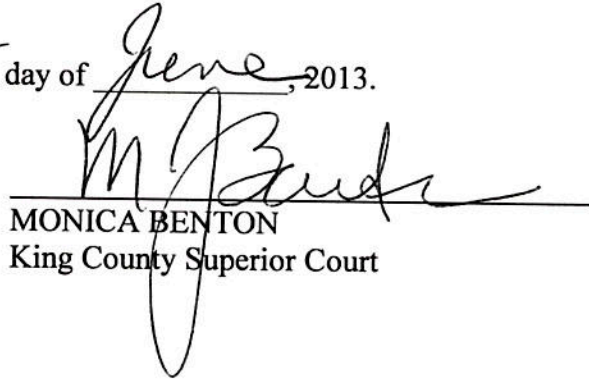 day of June, 2013.
M J Benton
MONICA BENTON
King County Superior Court